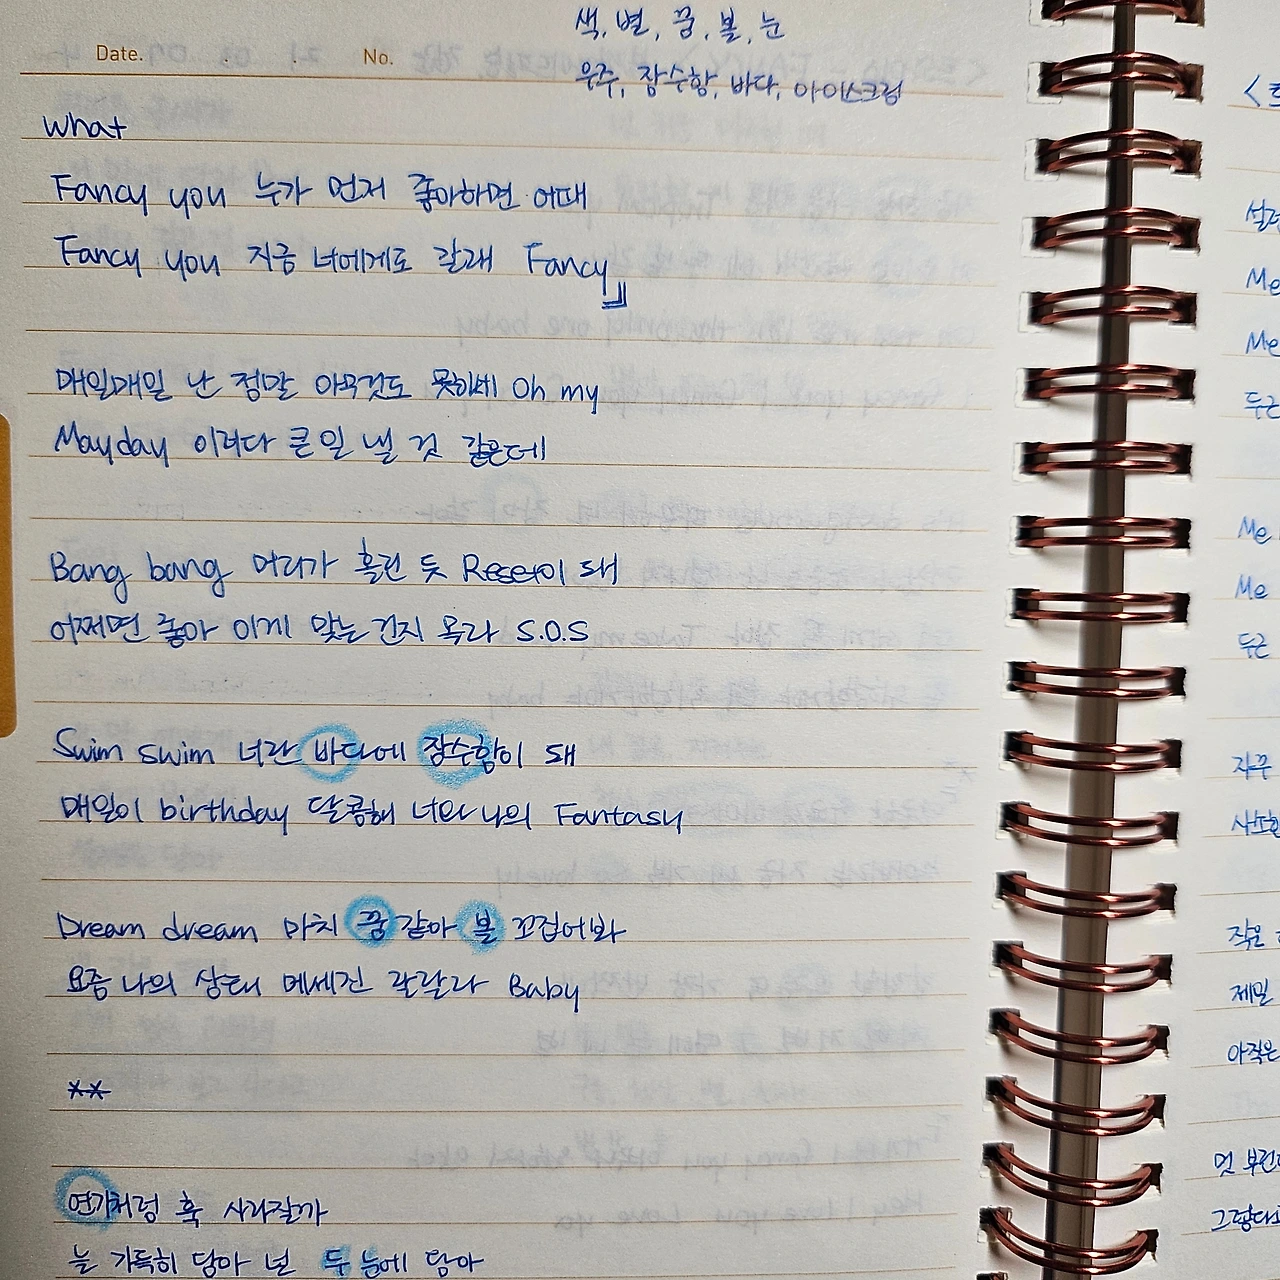 색, 별, 꿈, 볼, 눈
Date. No.
우주, 잠수함, 바다, 아이스크림
what
Fancy you 누가 먼저 좋아하면 어때
Fancy you 지금 너에게로 갈래 Fancy』
매일매일 난 정말 아무것도 못하네 Oh my
Mayday 이러다 큰 일 낼 것 같은데
Bang bang 머리가 홀린 듯 Reset이 돼
어쩌면 좋아 이게 맞는 건지 몰라 S.O.S
Swim swim 너란 바다에 잠수함이 돼
매일이 birthday 달콤해 너와 나의 Fantasy
Dream dream 마치 꿈 같아 볼 꼬집어봐
요즘 나의 상태 메세진 랄랄라 Baby
**
연기처럼 훅 사라질까
늘 가득히 담아 널 두 눈에 담아
<
설
Me
Me
두근
Me
Me
두근
자꾸
사소한
작은
제일
아직은
멋
그렇다